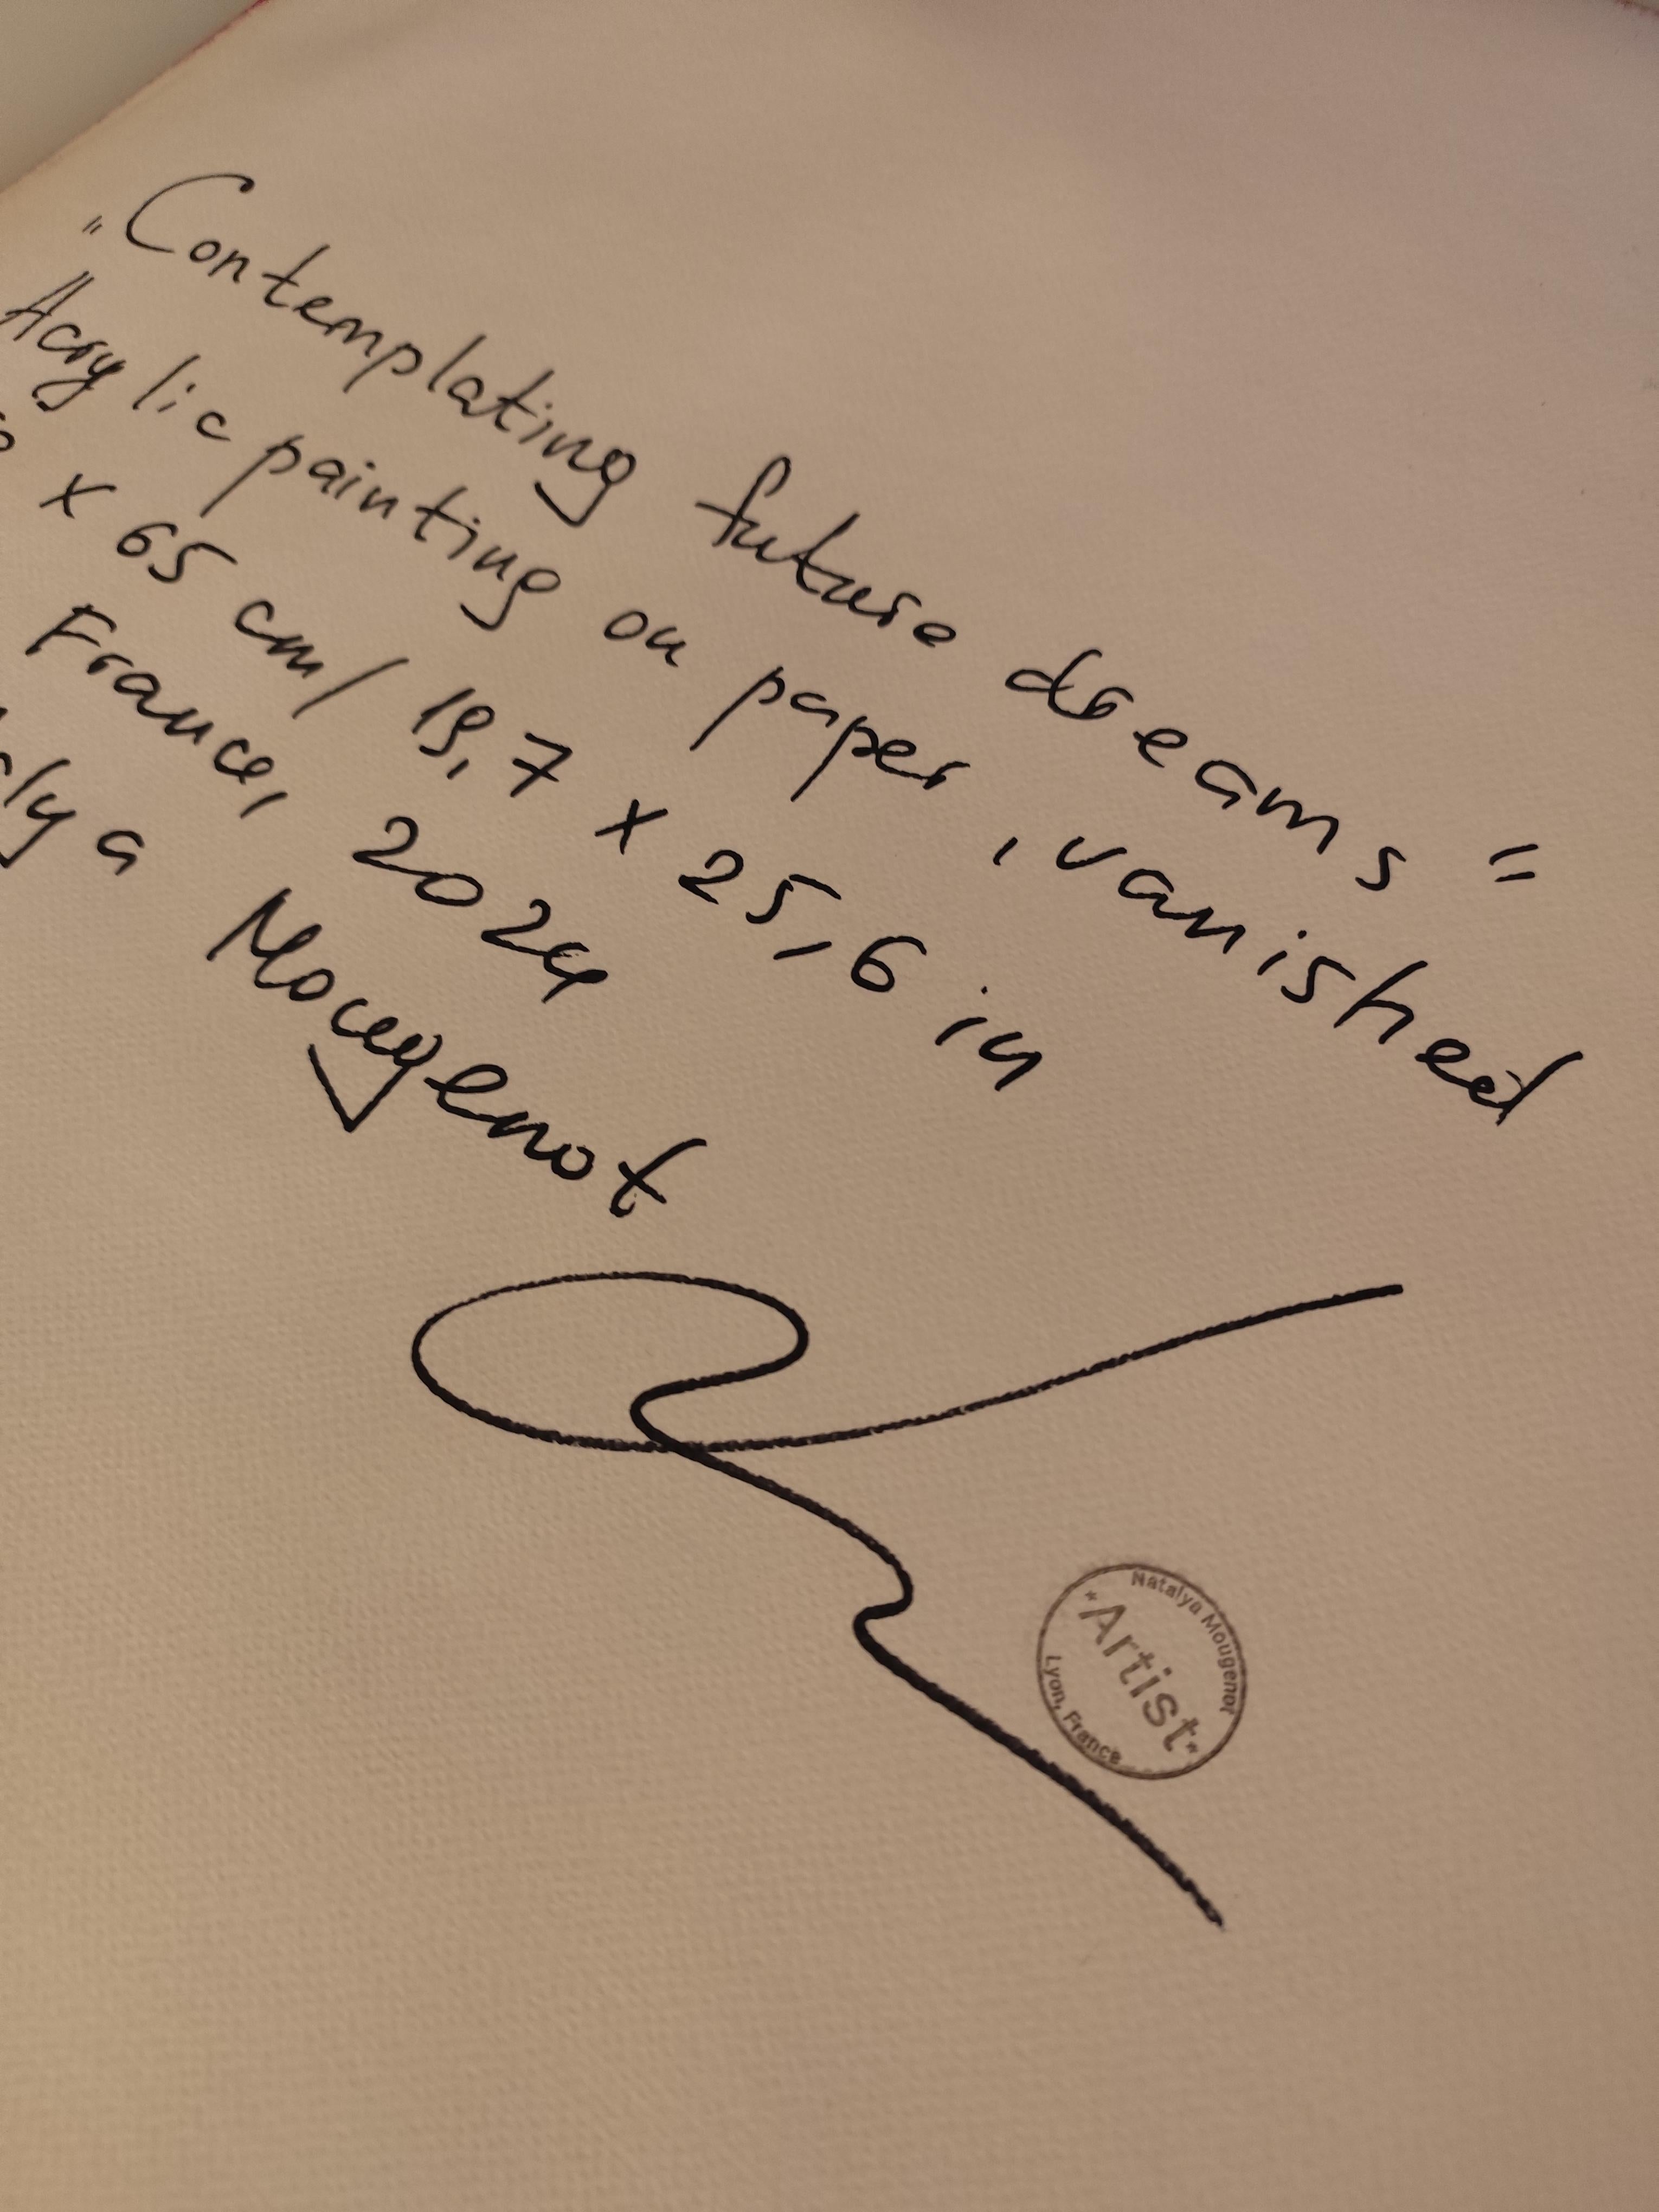 "Contemplating future dreams"
Acrylic painting on paper, vanished
x 65 cm/ 19,7 x 25,6 in
France, 2024
Mougenot
Natalya Mougenot
*Artist*
Lyon, France